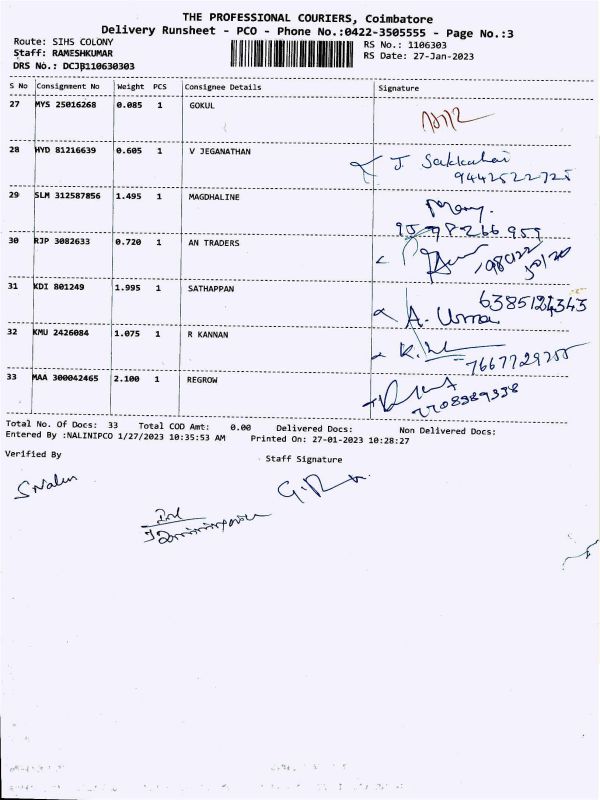 THE PROFESSIONAL COURIERS, Coimbatore
Delivery Runsheet - PCO - Phone No.:0422-3505555 - Page No.:3
Route: SIHS COLONY
RS No.: 1106303
Staff: RAMESHKUMAR
RS Date: 27-Jan-2023
DRS No.: DCJB110630303
S No Consignment No Weight PCS Consignee Details Signature
27 MYS 25016268 0.085 1 GOKUL
28 HYD 81216639 0.605 1 V JEGANATHAN
J. Sakkahai
9442522725
29 SLM 312587856 1.495 1 MAGDHALINE
Mary.
30 RJP 3082633 0.720 1 AN TRADERS
31 KDI 801249 1.995 1 SATHAPPAN
6385124343
A. Uma
32 KMU 2426084 1.075 1 R KANNAN
7667729255
33 MAA 300042465 2.100 1 REGROW
7708989338
Total No. Of Docs: 33 Total COD Amt: 0.00 Delivered Docs: Non Delivered Docs:
Entered By :NALINIPCO 1/27/2023 10:35:53 AM Printed On: 27-01-2023 10:28:27
Verified By
Staff Signature